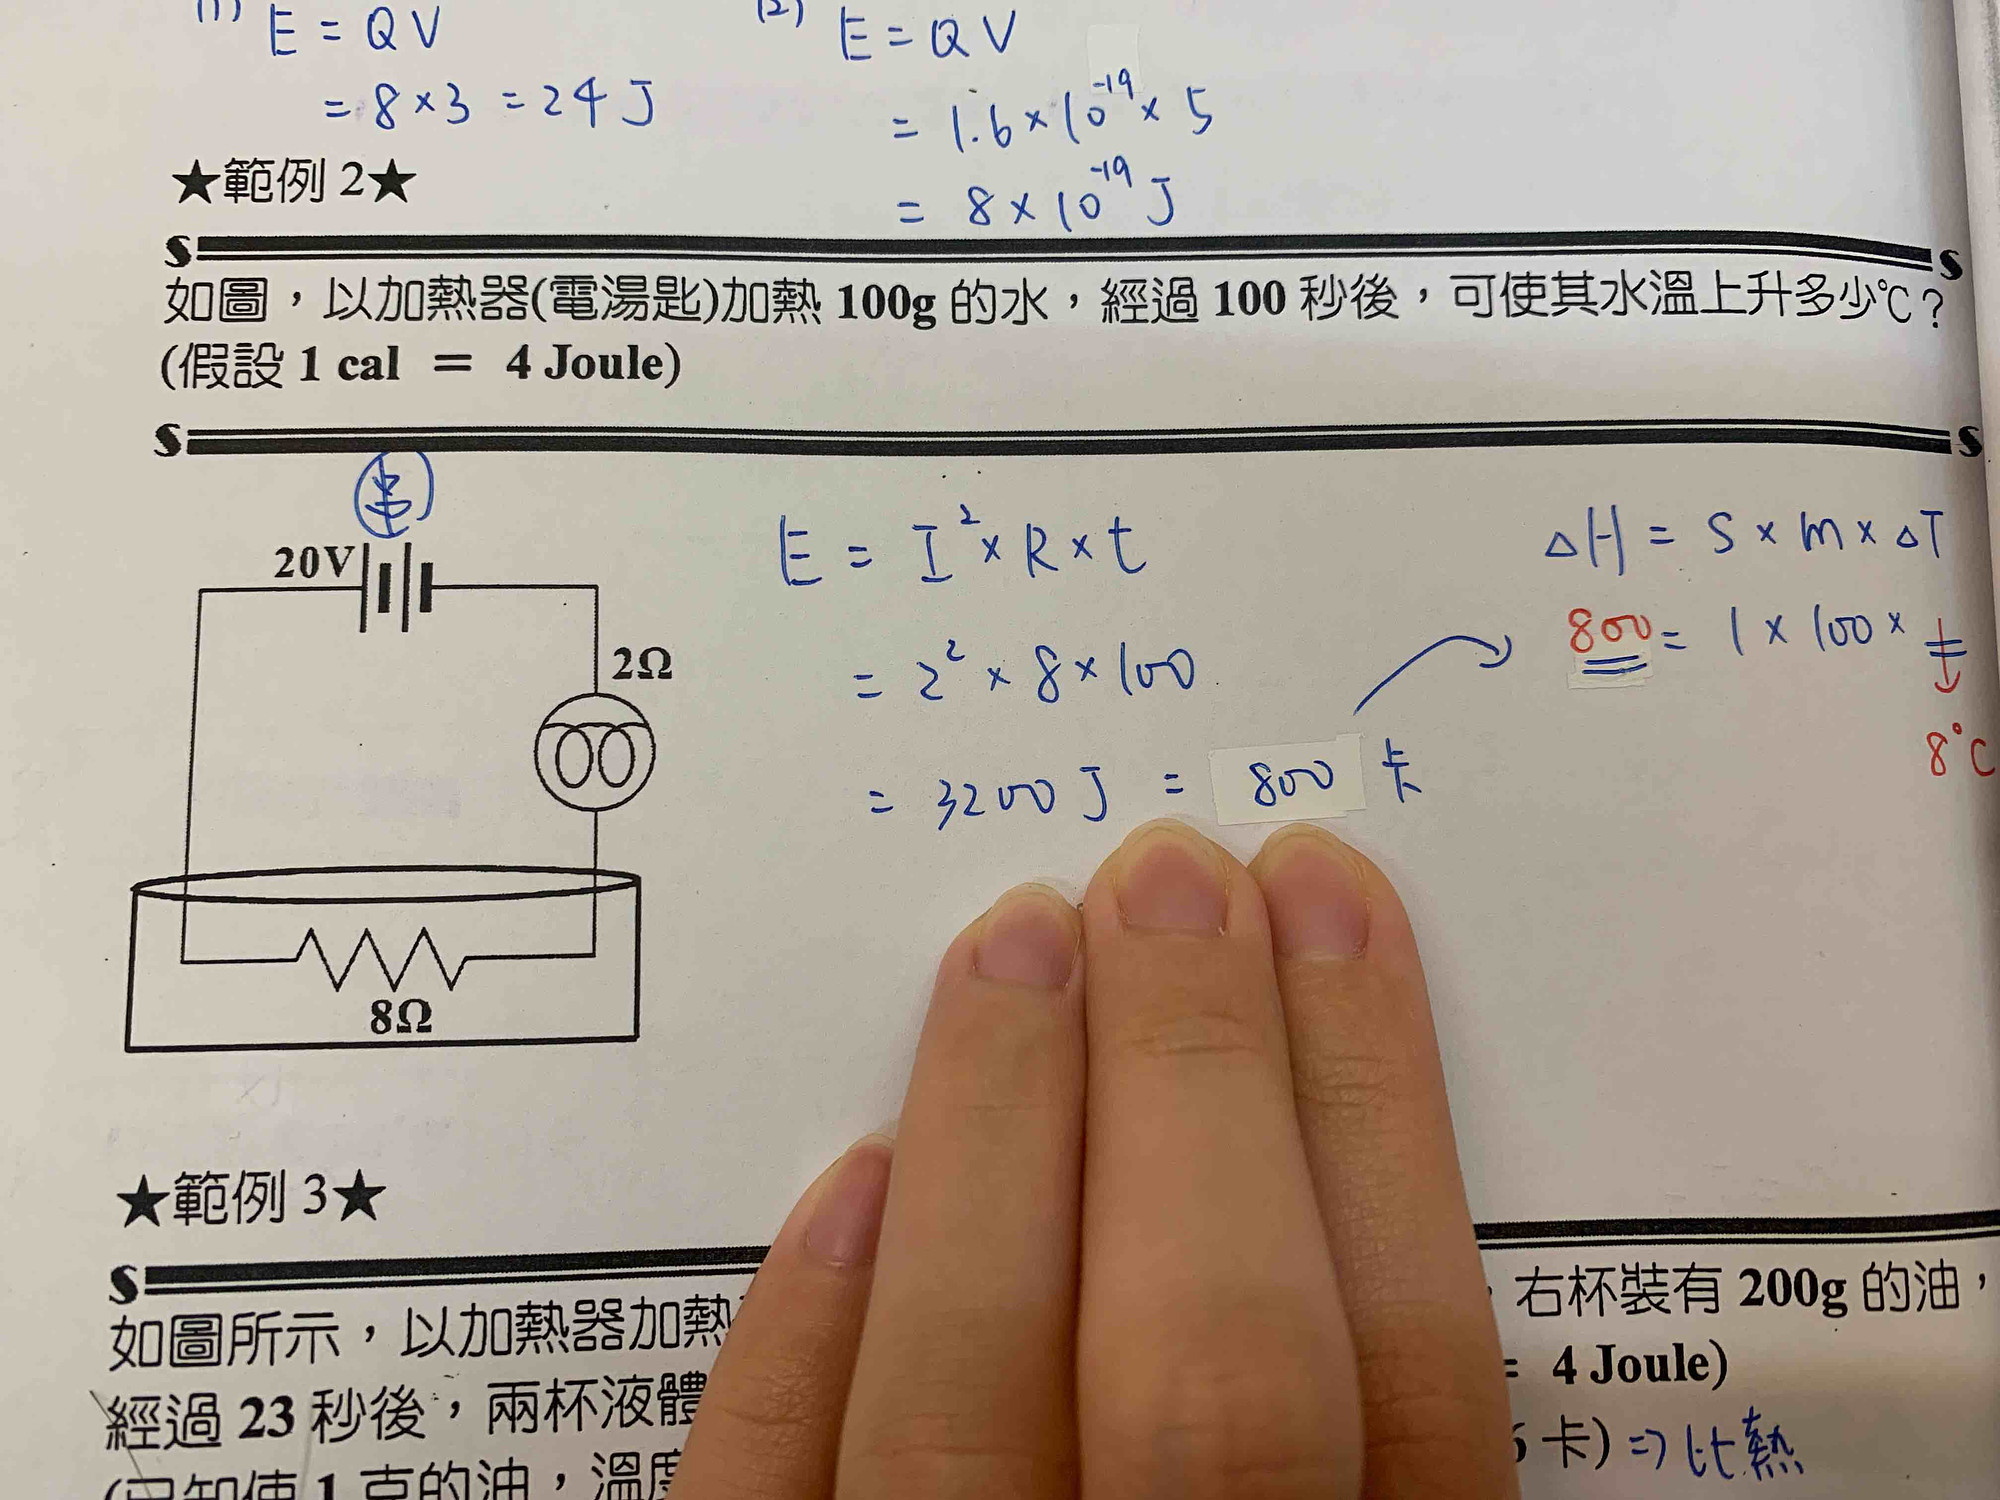 (1) E = QV
= 8 × 3 = 24 J
(2) E = QV
= 1.6 × 10⁻¹⁹ × 5
= 8 × 10⁻¹⁹ J
★範例 2★
如圖，以加熱器(電湯匙)加熱 100g 的水，經過 100 秒後，可使其水溫上升多少℃？
(假設 1 cal = 4 Joule)
串
20V
2Ω
8Ω
E = I² × R × t
= 2² × 8 × 100
= 3200 J = 800 卡
△H = S × m × △T
800 = 1 × 100 ×
8°C
★範例 3★
如圖所示，以加熱器加熱
右杯裝有 200g 的油，
經過 23 秒後，兩杯液體
= 4 Joule)
(已知使 1 克的油，溫度
卡) ⇒ 比熱